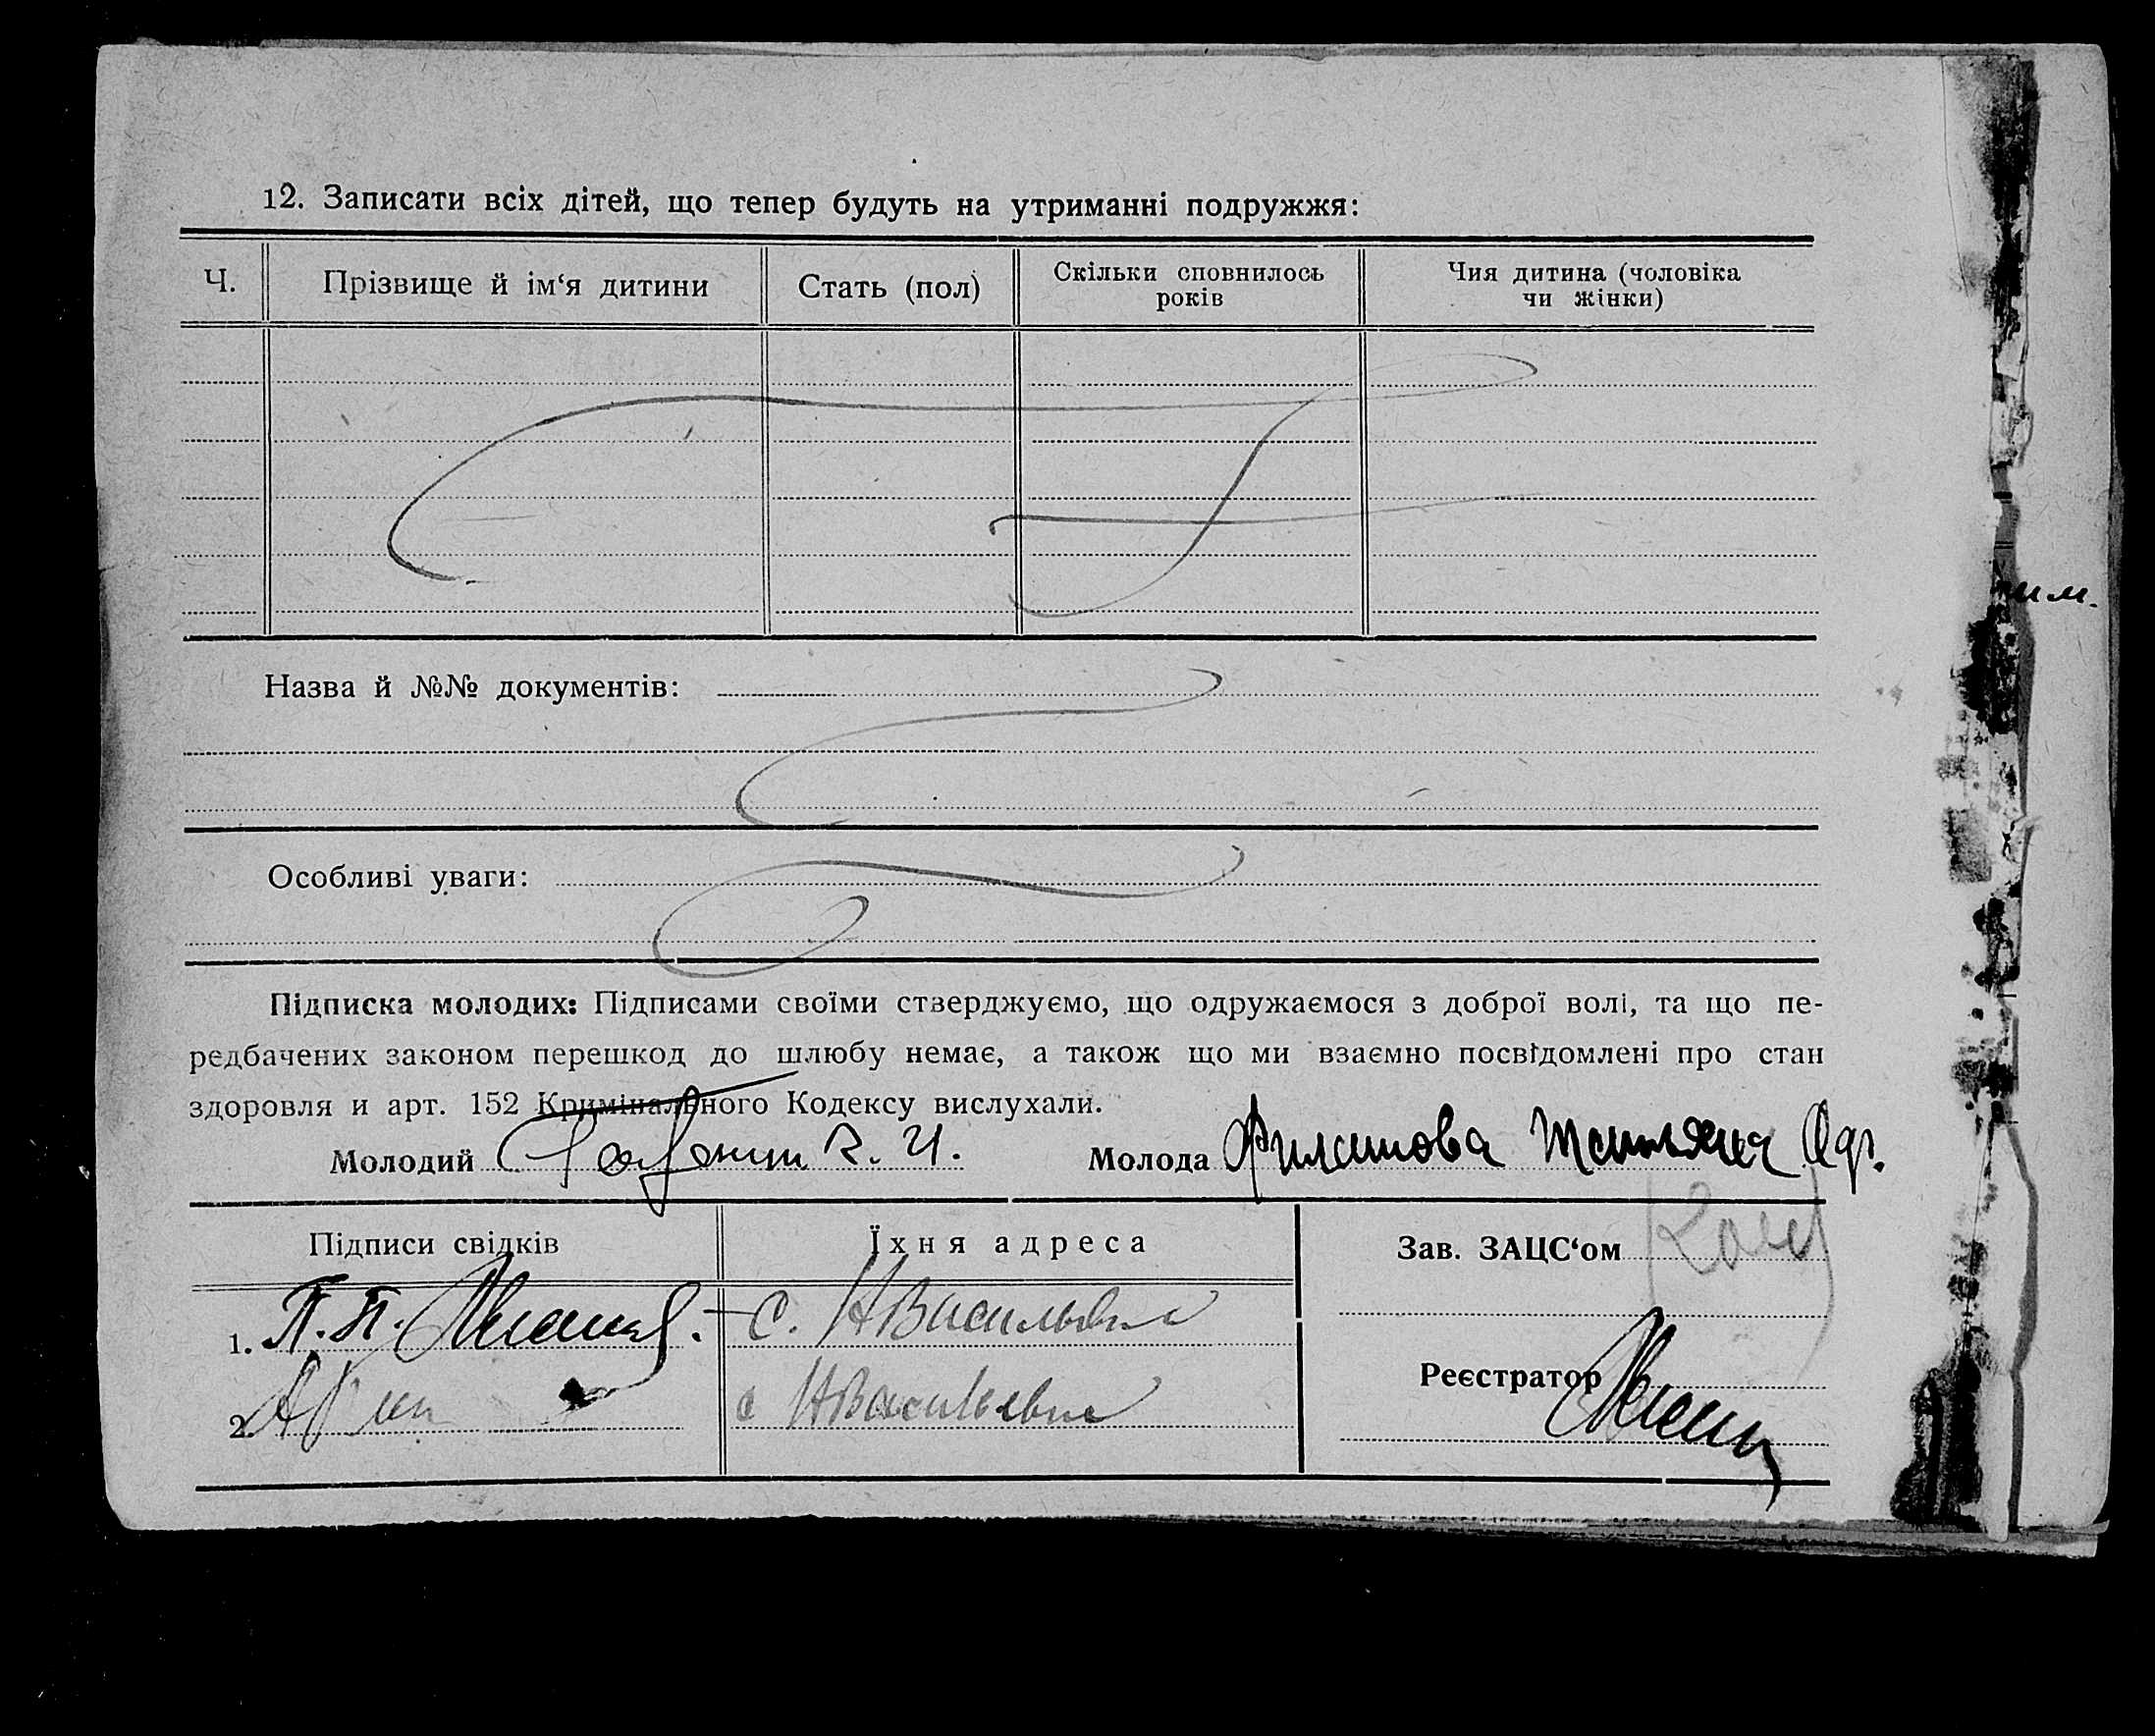 12. Записати всіх дітей, що тепер будуть на утриманні подружжя:
Ч.
Прізвище й ім‘я дитини
Стать (пол)
Скільки сповнилось
років
Чия дитина (чоловіка
чи жінки)
Назва й №№ документів:
Особливі уваги:
Підписка молодих: Підписами своїми стверджуємо, що одружаємося з доброї волі, та що пе-
редбачених законом перешкод до шлюбу немає, а також що ми взаємно посвідомлені про стан
здоровля и арт. 152 Кримінального Кодексу вислухали.
Молодий
Молода Филатова Татьяна
Підписи свідків
Їхня адреса
1. П. П.
с. НВасильевка
2.
с НВасильевка
Зав. ЗАЦС‘ом
Реєстратор